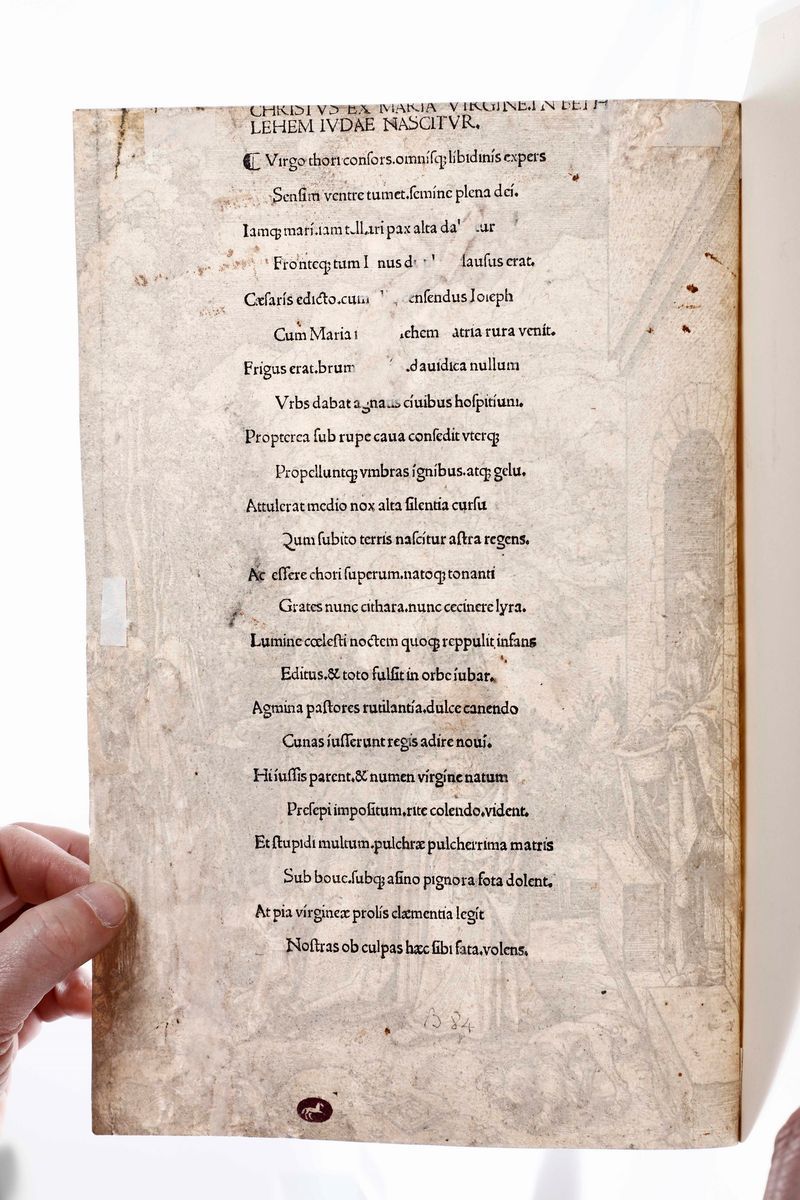 CHRISTVS EX MARIA VIRGINE.IN BETH
LEHEM IVDAE NASCITVR.
Virgo thori conſors.omniſqꝫ libidinis expers
Senſim ventre tumet.ſemine plena dei.
Iamqꝫ mari.iam pax alta
Fronteqꝫ tum erat.
Cæſaris edicto.cum Ioſeph
Cum Maria rura venit.
Frigus erat.brum dauidica nullum
Vrbs dabat ciuibus hoſpitium.
Propterea ſub rupe caua conſedit vterqꝫ
Propelluntqꝫ vmbras ignibus.atqꝫ gelu.
Attulerat medio nox alta ſilentia curſu
Qum ſubito terris naſcitur aſtra regens.
Ac eſſere chori ſuperum.natoqꝫ tonanti
Grates nunc cithara.nunc cecinere lyra.
Lumine cœleſti noctem quoqꝫ reppulit infans
Editus.& toto fulſit in orbe iubar.
Agmina paſtores rutilantia.dulce canendo
Cunas iuſſerunt regis adire noui.
Hi iuſſis parent.& numen virgine natum
Preſepi impoſitum.rite colendo.vident.
Et ſtupidi multum.pulchræ pulcherrima matris
Sub boue.ſubqꝫ aſino pignora fota dolent.
At pia virgineæ prolis clæmentia legit
Noſtras ob culpas hæc ſibi fata.volens.
B 84